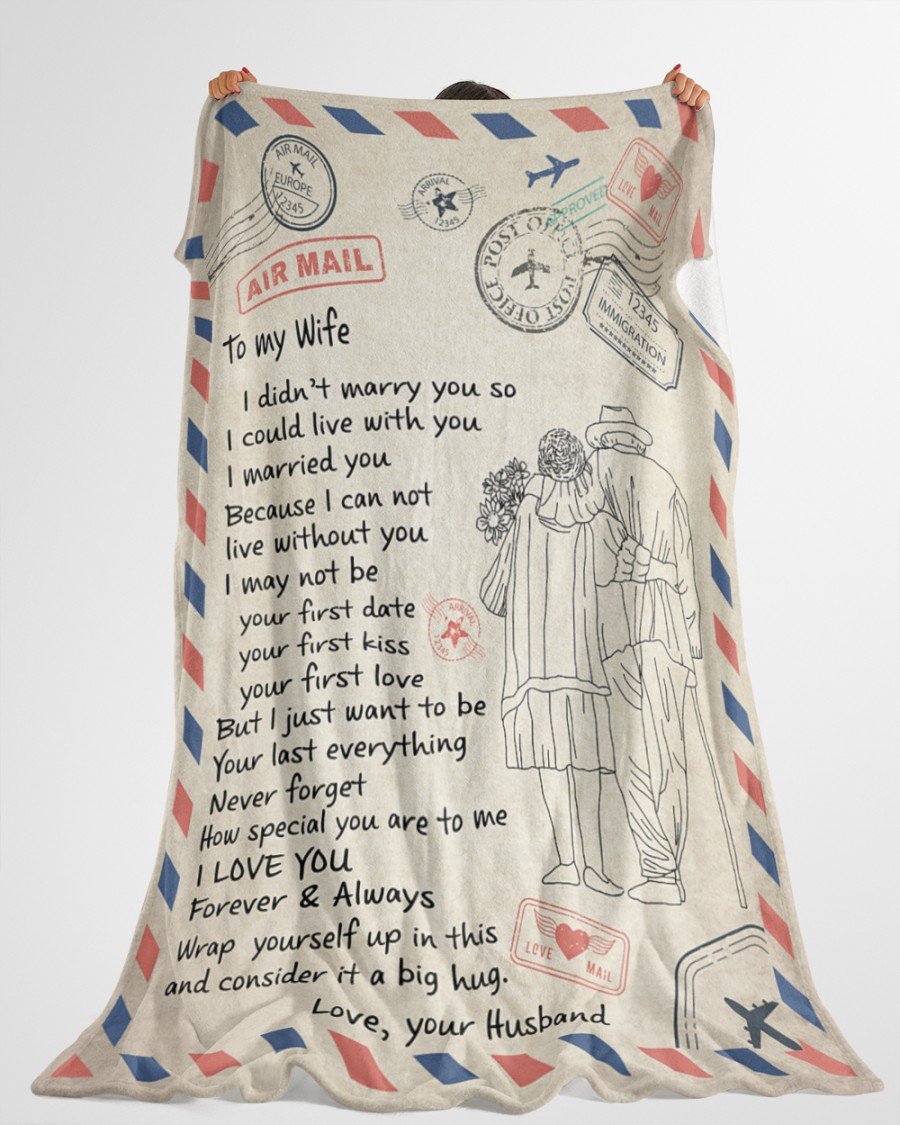 AIR MAIL
EUROPE
12345
ARRIVAL
12345
LOVE MAIL
POST OFFICE POST OFFICE
12345
IMMIGRATION
AIR MAIL
To my Wife
I didn't marry you so
I could live with you
I married you
Because I can not
live without you
I may not be
your first date
your first kiss
your first love
But I just want to be
Your last everything
Never forget
How special you are to me
I LOVE YOU
Forever & Always
Wrap yourself up in this
and consider it a big hug.
Love, your Husband
ARRIVAL
12345
LOVE MAIL